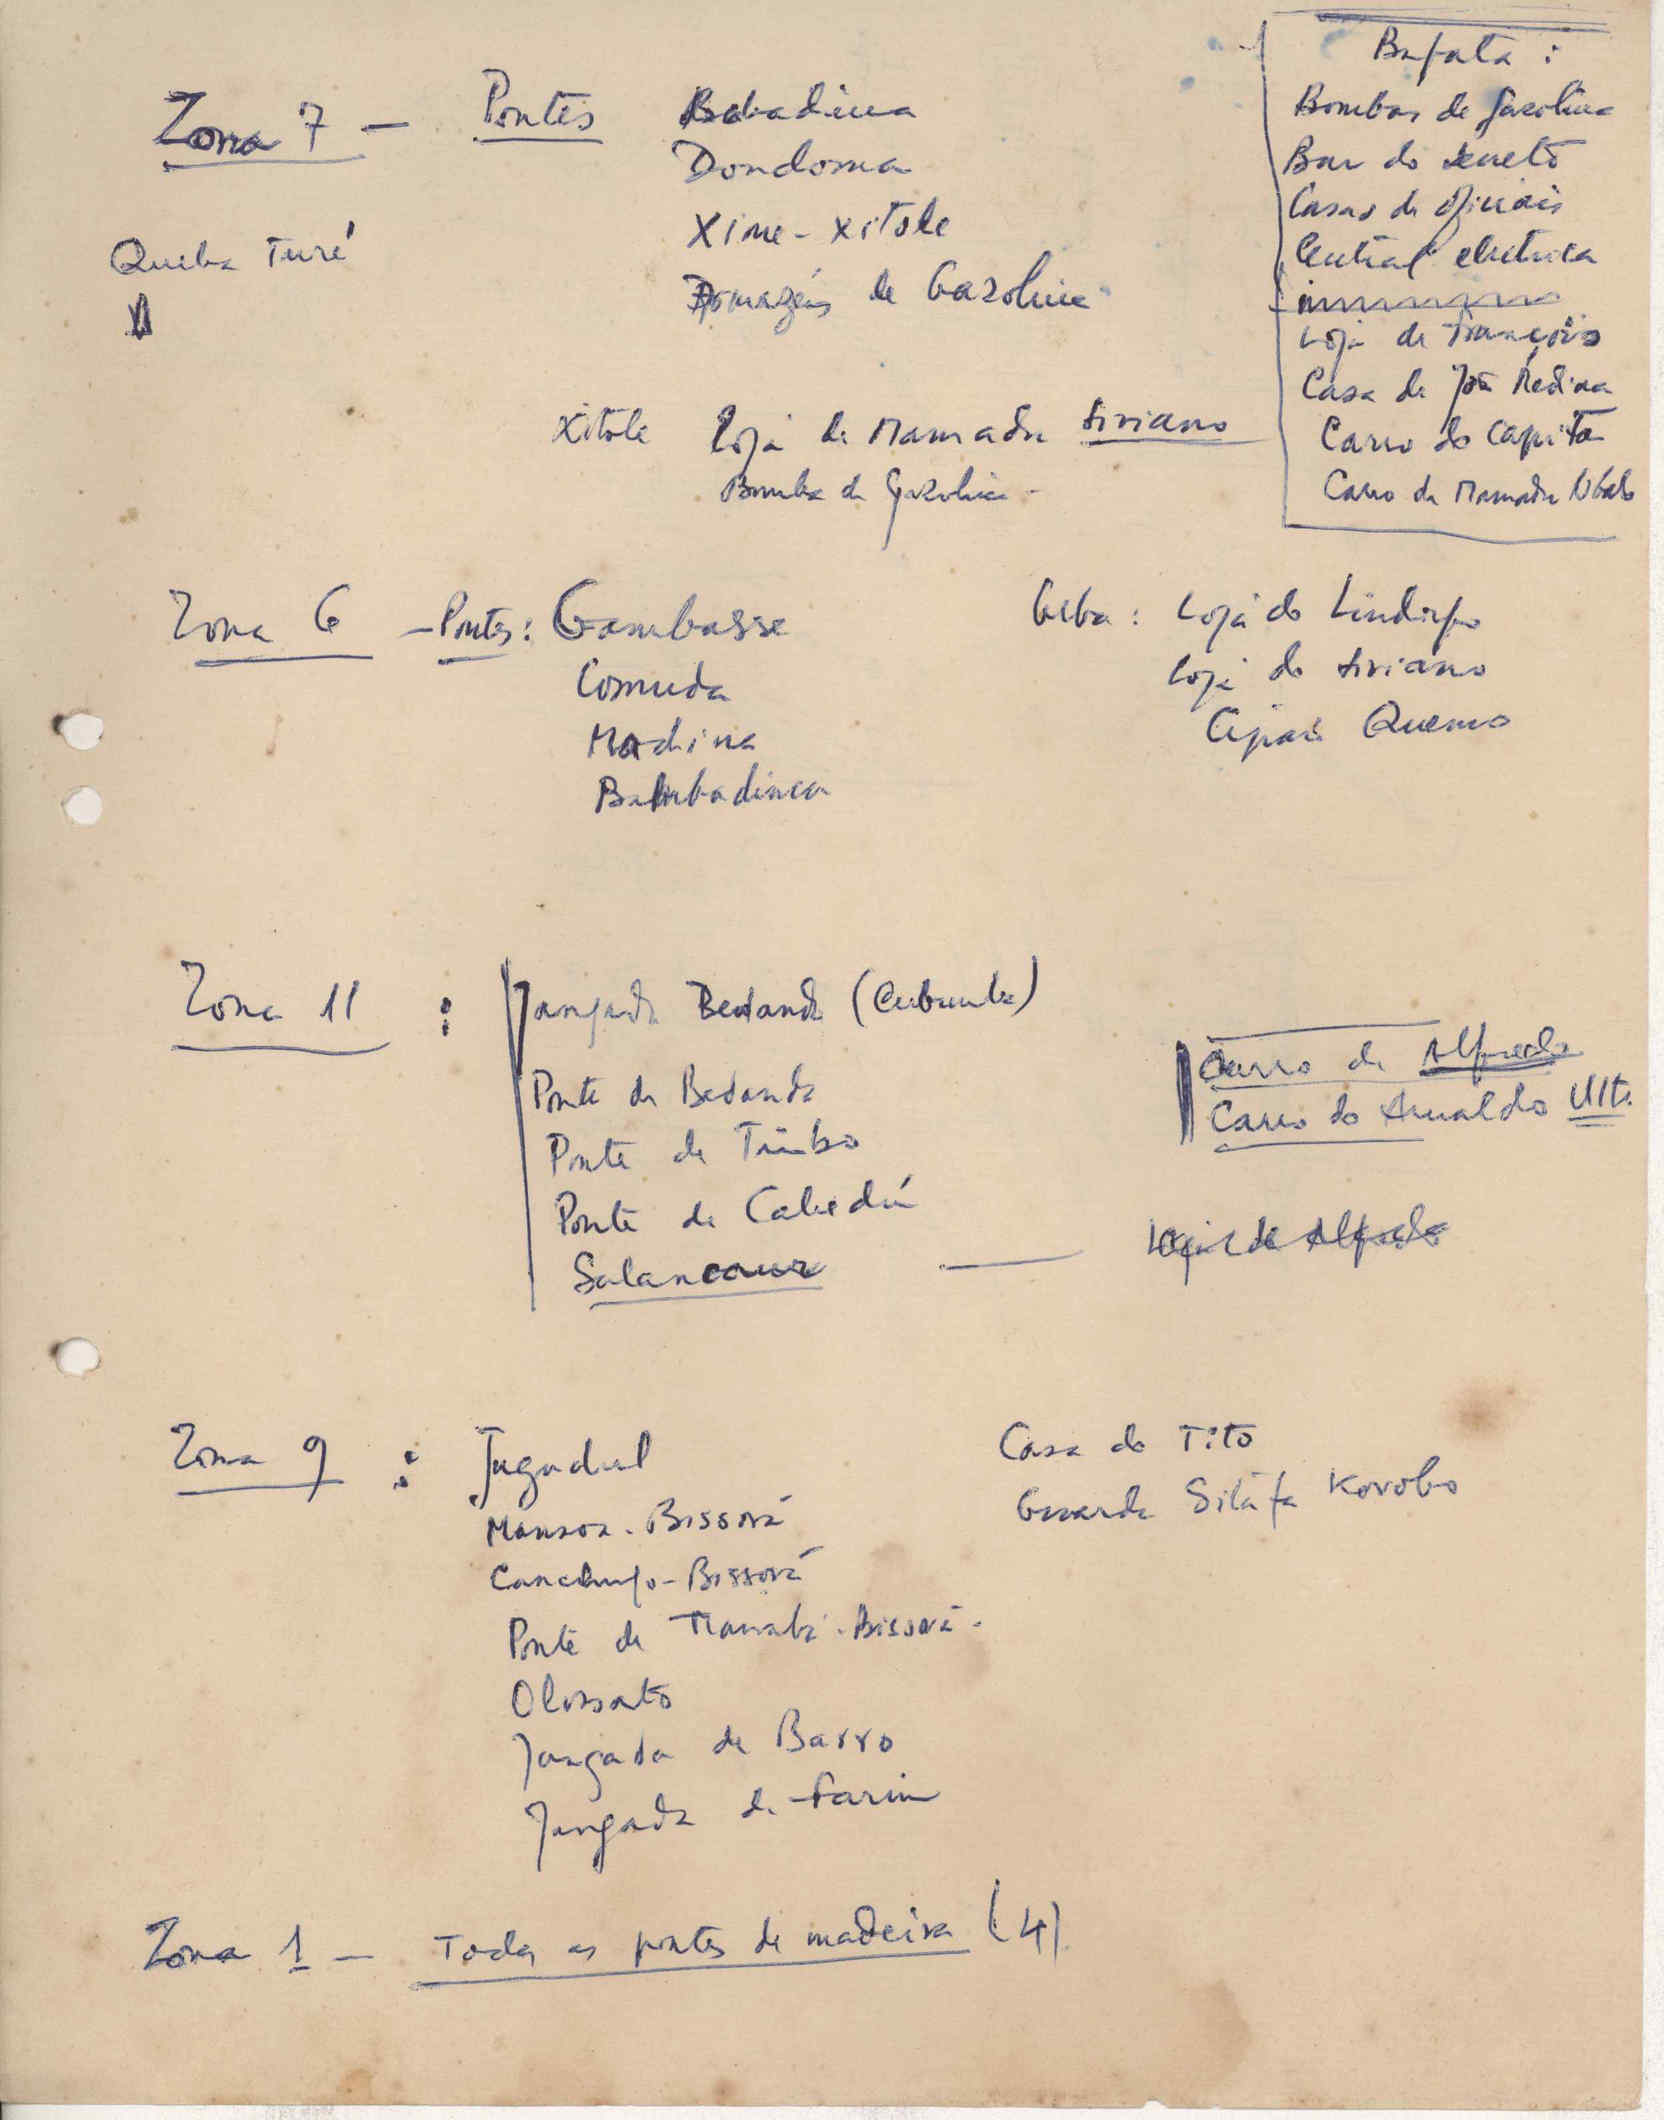 Zona 7 - Pontes Babadinca
Dondoma
Xime - Xitole
Armazéns de Gazolina
Queba Turé
Xitole Loja de Mamadu Siriano
Bomba de Gazolina -
Bafata :
Bombas de gazolina
Bar do
Casas de oficiais
Central electrica
Loja de François
Casa de João Redina
Carro do Capitão
Carro de Mamadu
Zona 6 - Pontes : Gambasse
Comuda
Madina
Bambadinca
Geba : Loja do Lindolfo
Loja do Siriano
Cipai Quemo
Zona 11 : Jangada Bedanda (Cubumba)
Ponte de Bedanda
Ponte de Timbo
Ponte de Cabedú
Salancaur
Carro de Alfredo
Carro do Arnaldo Ult.
Loja de Alfredo
Zona 9 : Jugudul
Mansoa - Bissorã
Canchungo - Bissorã
Ponte de - Bissorã -
Olossato
Jangada de Barro
Jangada de Farim
Casa do Tito
Guarda Sitáfa Korobo
Zona 1 - Todas as pontes de madeira (4)